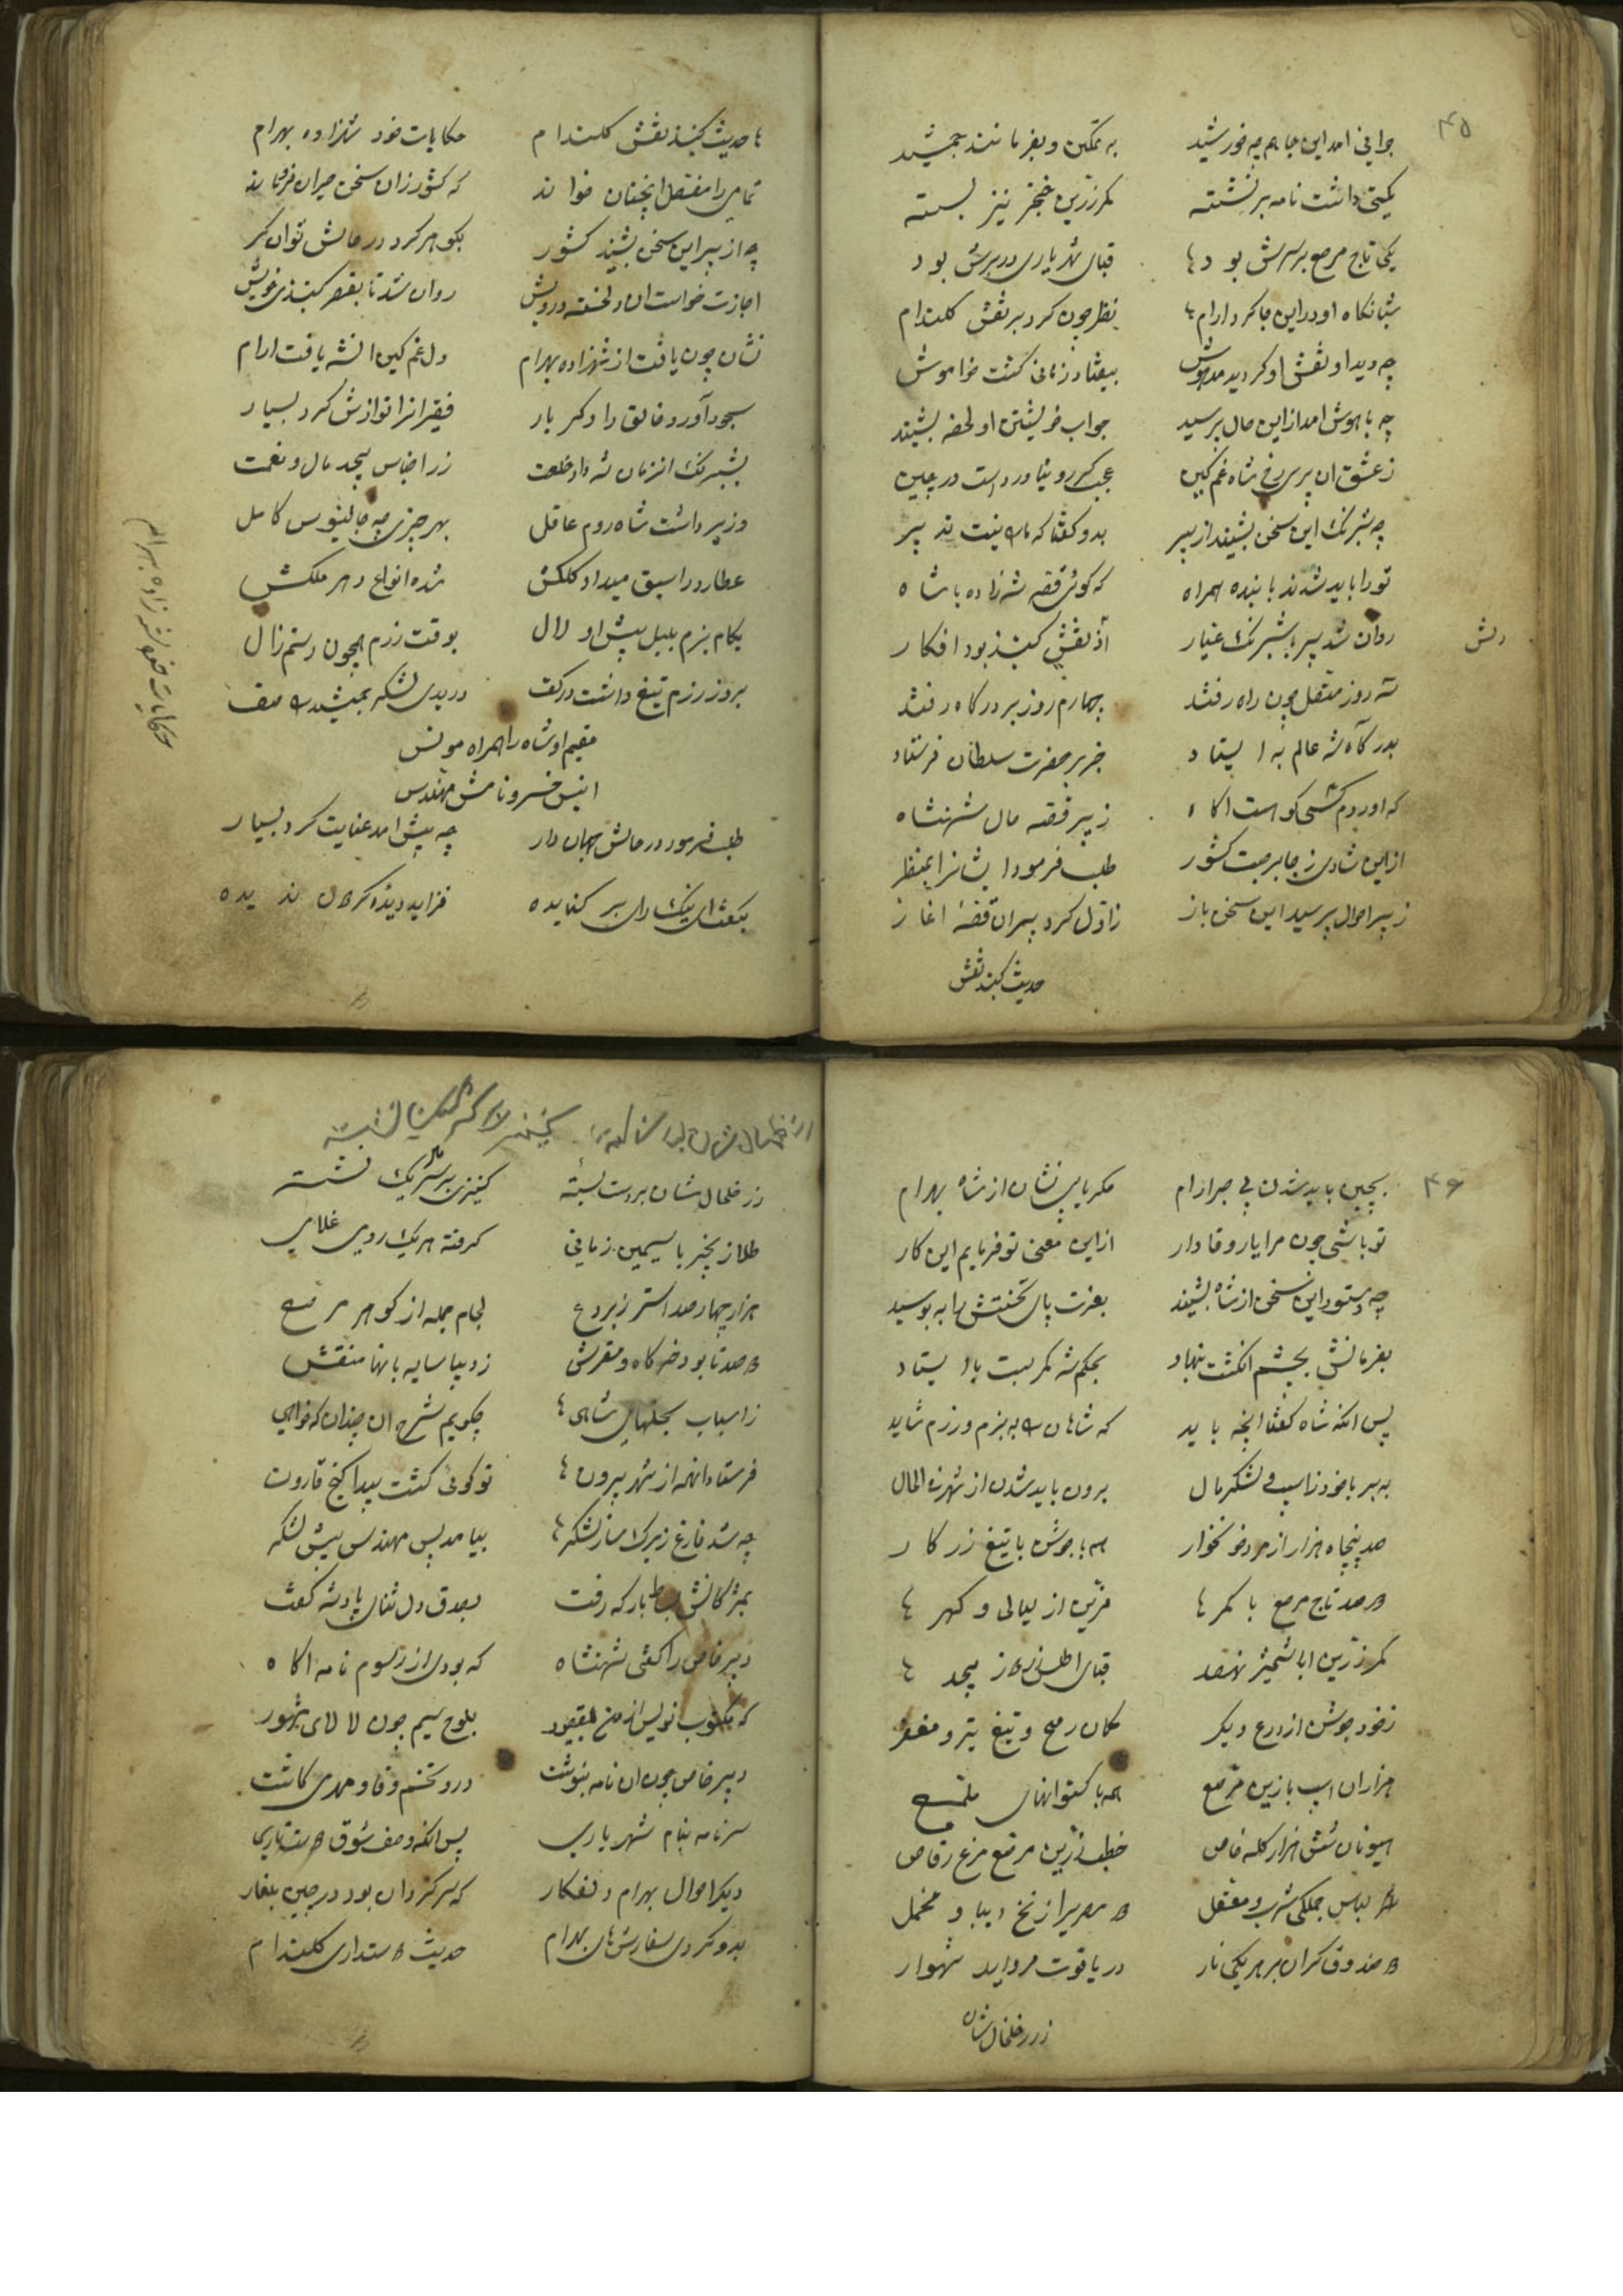 ۴۵
جوانی امد این جا هم چه خورشید به تمکین و بفر مانند جمشید
یکتی داشت نامه برنشسته کمر زرین خنجر نیز بسته
یکی تاج مرصع بر سرش بود ها قبای شهریاری در برش بود
شبانکاه او در این جا کرد ارام ها نظر چون کرد بر نقش کلندام
چه دید او نقش او کردید مدهوش بیفتاد زمانی کشت خواموش
چه با هوش امد از این حال پرسید جواب خویشتن او لحضه بشنید
ز عشق ان پری رخ شاه غم کین عجب کر رو نیاورداست در چین
چه شبرنک این سخن بشنید از پیر بدو کفتا که نیست تدبیر
تو را باید شدند با بنده همراه که کوئی قصه شه زاده با شاه
روان شد پیر با شبرنک عیار از نقش کنبد بود افکار
دلش
سه روز متصل چون راه رفتند چهارم روز بر درکاه رفتند
بدرکاه شه عالم به ایستاد خبر بر حضرت سلطان فرستاد
که اوردم کسی کو است اکاه ز پیر قصه مال شهنشاه
از این شادی ز جا برجست کشور طلب فرمود ایشانرا بمنظر
ز پیر احوال پرسید این سخن باز ز اول کرد پیر ان قصهٔ اغاز
حدیث کنبد نقش
ها حدیث کنبد نقش کلندام حکایات خود شهزاده بهرام
تمامی را مفصل انچنان خواند که کشور زان سخن حیران فروماند
چه از پیر این سخن بشنید کشور بکوهر کرد در حالش توانکر
اجازت خواست ان دلخسته درویش روان شد تا بقصر کنبدی خویش
نشان چون یافت از شهزاده بهرام دل غم کین انشه یافت ارام
سجود آورد خالق دادکر بار فقیرانرا نوازش کرد بسیار
بشبرنک انزمان شه داد خلعت زر اجناس بیحد مال و نعمت
وزیر داشت شاه روم عاقل بهر چیزی چه جالینوس کامل
عطارد را سبق میداد کلکش شده انواع در هر ملکش
بکام بزم بلبل پیش او لال بوقت رزم همچون رستم زال
بروز رزم تیغ داشت در کف دریدی لشکر جمشید صف
مقیم او شاه را همراه مونس
انیس خسرو نامش مهندس
طلب فرمود در حالش جهان دار چه پیش امد عنایت کرد بسیار
بکفتا ای نیک رای بر کشاید فزاید دیده کردن ندیده
حکایات حضور شه زاده بهرام
۴۶
بچین باید شدن فی جبر ارام مکر یابی نشان از شاه بهرام
تو باشی چون مرا یار وفادار از این معنی تو فرمایم این کار
چه دستور این سخن از شاه بشنید بعزت پای تختش را به بوسید
بفرمانش بچشم انکشت نهاد بحکم شه کمر بست با ایستاد
پس انکه شاه کفتا انچه باید که شاهان به بزم و رزم شاید
به بر با خود ز اسب و لشکر مال برون باید شدن از شهر فی الحال
صد پنجاه هزار از مرد خونخوار همه با جوشن با تیغ زرکار
صد تاج مرصع با کمر ها مزین از لیالی و کهر ها
کمر زرین ابا شمشیر نهصد قبای اطلس زرکار بیحد ها
ز خود جوشن از درع دیکر کمان رمح و تیغ تبر و مغفر
هزاران اسب با زین مرصع همه با کستوانهای ملمع
هیونان شش هزار کله خاص خطب زرین مرصع مرغ رقاص
لباس جملکی شرب و مصقل حریر از نخ دیبا و مخمل
صندوق کران بر هر یکی بار در یاقوت مروارید شهوار
زر خلخال شان
زر خلخال شان بر دست بسته کنیزی بر سر هر یک نشسته
طلا زنجیر با سیمین زمانی کرفته هر یک رومی غلامی
هزار چهار صد استر ز بردع لجام جمله از کوهر مرصع
صد تا بود خرکاه و مفرش ز دیبا سایه بانها منقش
ز اسباب تجملهای شاهی ها چکویم شرح ان چندان که خواهی
فرستادانهمه از شهر بیرون ها تو کوئی کشت پیدا کنج قارون
چه شد فارغ ز برک ساز لشکر ها بیامد پس مهندس پیش لشکر
بمژکانش بساط بارکه رفت بصدق دل ثنای پادشه کفت
دبیر خاص را کفتی شهنشاه که بودی از رسوم نامه اکاه
که مکتوب نویس از من بفیفور بلوح سیم چون لالای مشهور
دبیر خاص چون ان نامه بنوشت درو تخم وفا و مهر می کاشت
سر نامه بنام شهریاری پس انکه وصف شوق
دیکر احوال بهرام دلفکار که سر کردان بود در چین بلغار
بدو کردی سفارشهای بهرام حدیث دستداری کلندام